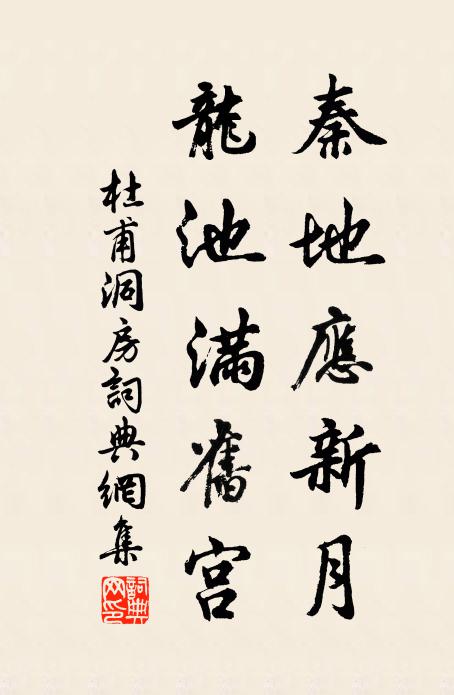 秦地應新月
龍池滿舊宮
杜甫洞房詞典網集
詞典网印